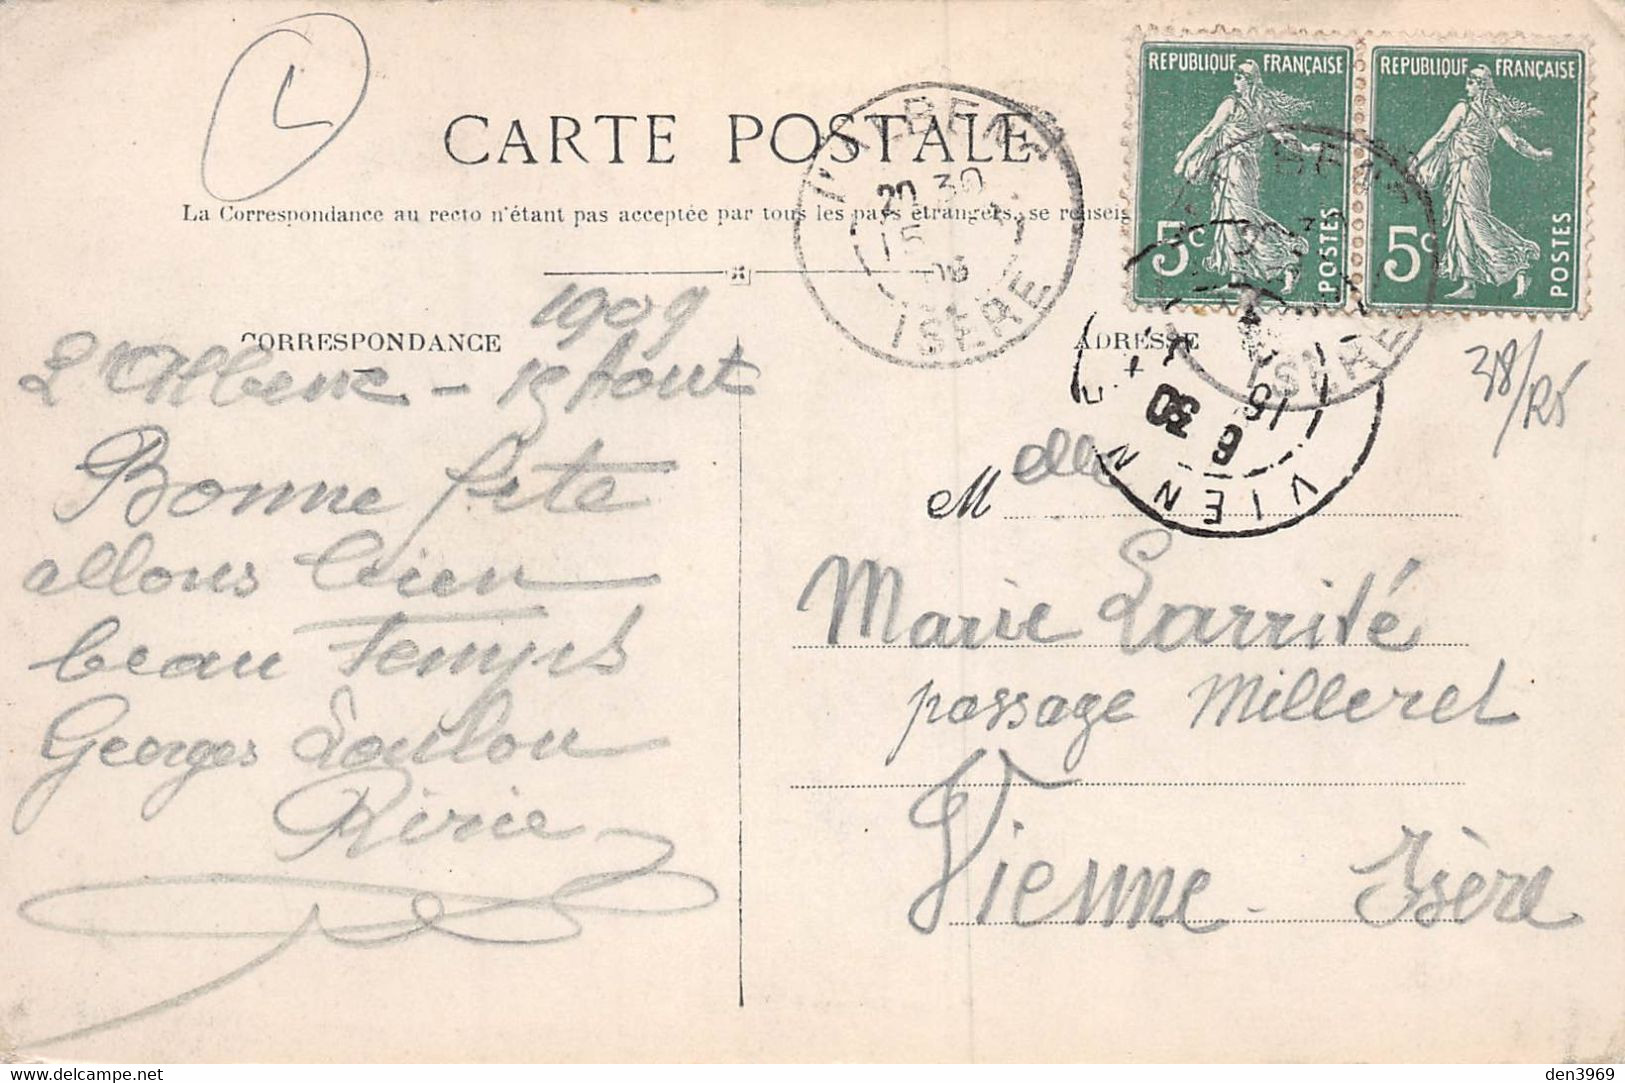 L
CARTE POSTALE
La Correspondance au recto n'étant pas acceptée par tous les pays étrangers, se renseig
REPUBLIQUE FRANÇAISE
5c
POSTES
REPUBLIQUE FRANÇAISE
5c
POSTES
20 30
15
ISERE
ISERE
VIENNE
CORRESPONDANCE
ADRESSE
38/R5
1909
L'Albenc - 15 Aout
Bonne fete
allons bien
beau temps
Georges Loulou
Ririe
Melle
Marie Larrivé
passage Milleret
Vienne - Isère
den3969